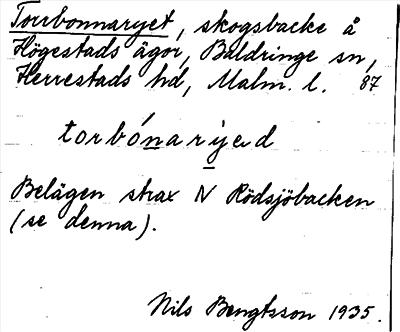 Torrbonnaryet, skogsbacke å
Högestads ägor, Baldringe sn,
Herrestads hd, Malm. l. 87
torbónaryed
Belägen strax N Rödsjöbacken
(se denna).
Nils Bengtsson 1935.